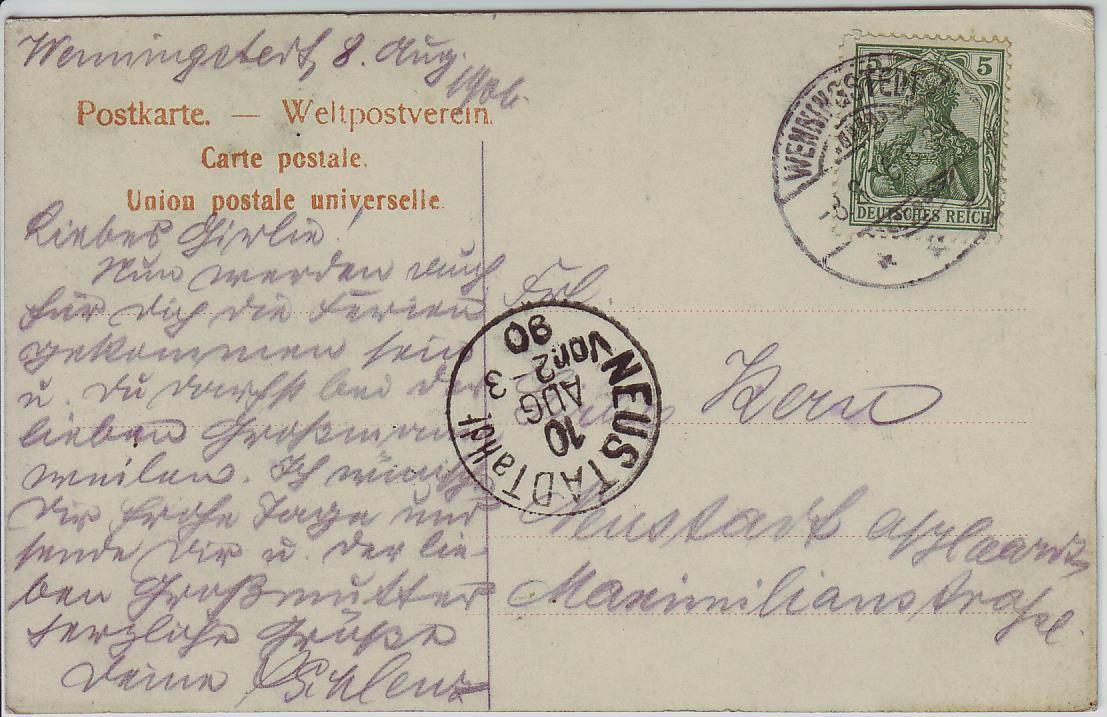 Wenningstedt, 8. Aug.
1906.
Postkarte. — Weltpostverein.
Carte postale.
Union postale universelle
Liebes Girlie!
Nun werden auch
für Dich die Ferien
gekommen sein
u. Du darfst bei der
lieben Großmama
weilen. Ich wünsche
Dir frohe Tage und
sende Dir u. der lie-
ben Großmutter
herzliche Grüße
Deine
5 5
DEUTSCHES REICH
WENNINGSTEDT
NEUSTADT a Hdt
10
AUG
3
Frl.
Kern
Neustadt a/Haardt
Maximilianstraße.